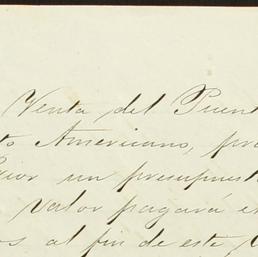 Venta del Puent
to Americano, pro
un presupuest
valor pagará e
os al fin de este